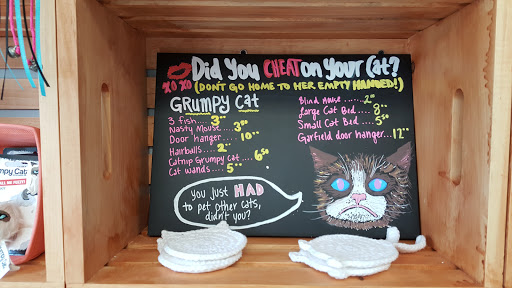 Did You CHEAT on Your Cat?
XO XO (DON'T GO HOME TO HER EMPTY HANDED!)
GRUMPY CAT
3 fish.... 3⁰⁰
Nasty Mouse.... 3⁰⁰
Door hanger.... 10⁰⁰
Hairballs.... 2⁰⁰
Catnip Grumpy Cat.... 6⁵⁰
Cat wands.... 5⁰⁰
Blind Mouse.... 2⁰⁰
Large Cat Bed.... 8⁰⁰
Small Cat Bed.... 5⁵⁰
Garfield door hanger... 12⁰⁰
you just HAD
to pet other cats,
didn't you?